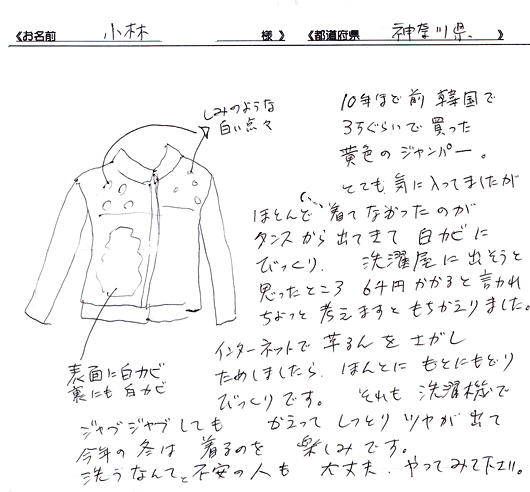 《お名前 小林 様》 《都道府県 神奈川県 》
しみのような
白い点々
10年ほど前 韓国で
3万ぐらいで買った
黄色のジャンパー。
とても気に入ってましたが
ほとんど 着てなかったのが
タンスから出てきて 白カビに
びっくり. 洗濯屋に出そうと
思ったところ 6千円かかると言われ
ちょっと考えますともちかえりました。
インターネットで革るんをさがし
ためしましたら. ほんとに もとにもどり
びっくりです。 それも 洗濯機で
ジャブジャブしても かえって しっとり ツヤが出て
今年の冬は 着るのを 楽しみです。
洗うなんてと不安の人も 大丈夫. やってみて下さい。
表面に白カビ
裏にも白カビ